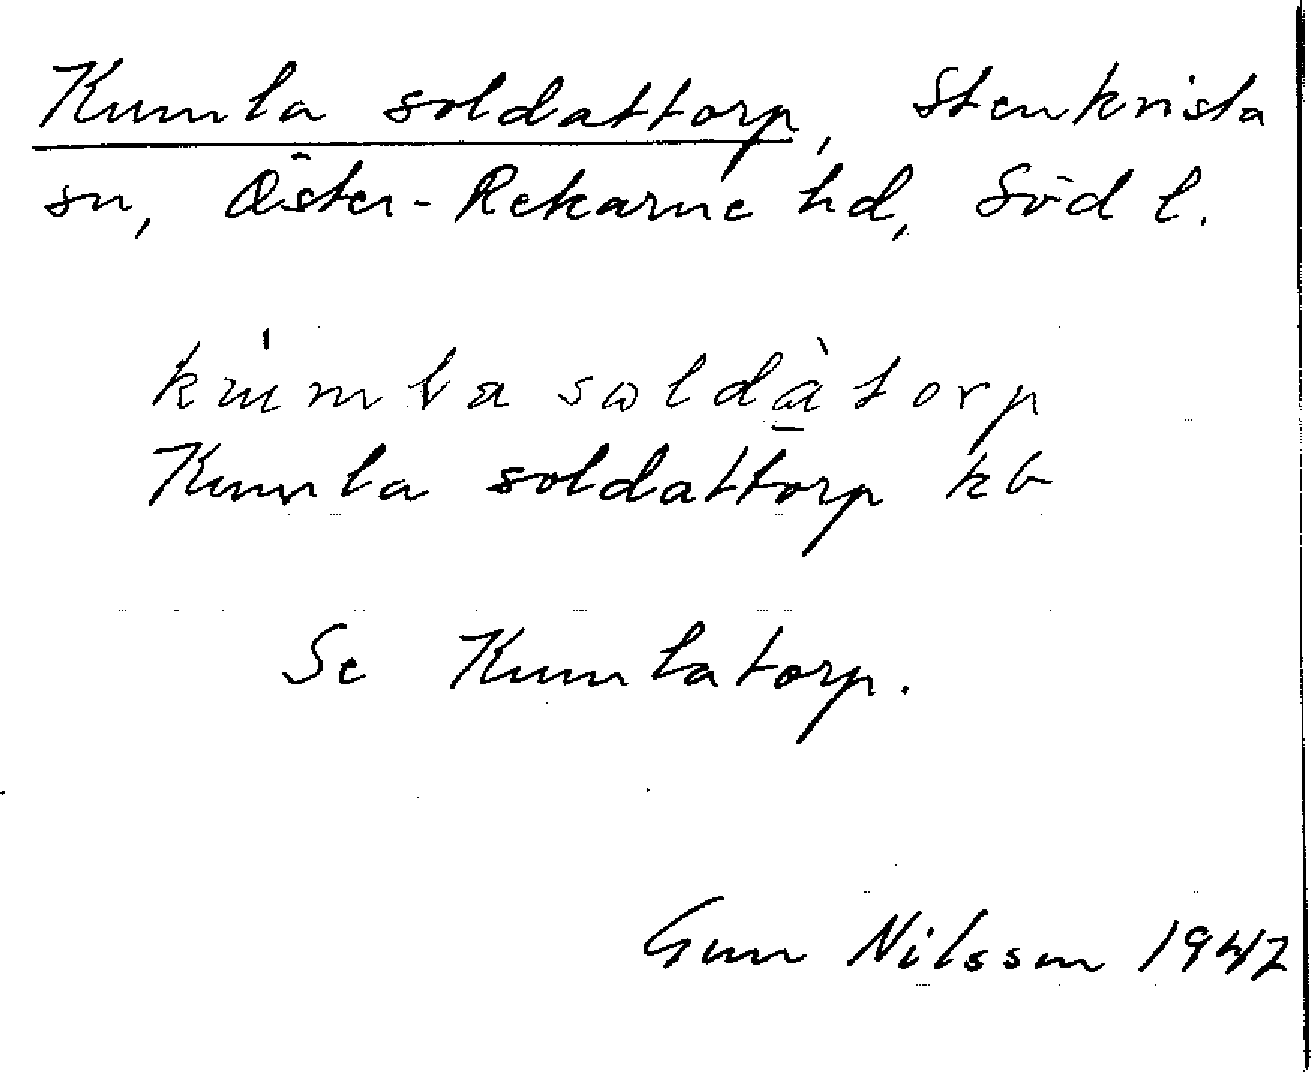 Kumla soldattorp, Stenkvista
sn, Öster-Rekarne hd, Söd l.
soldàtorp
Kumla soldattorp kb
Se Kumlatorp.
Gun Nilsson 1947